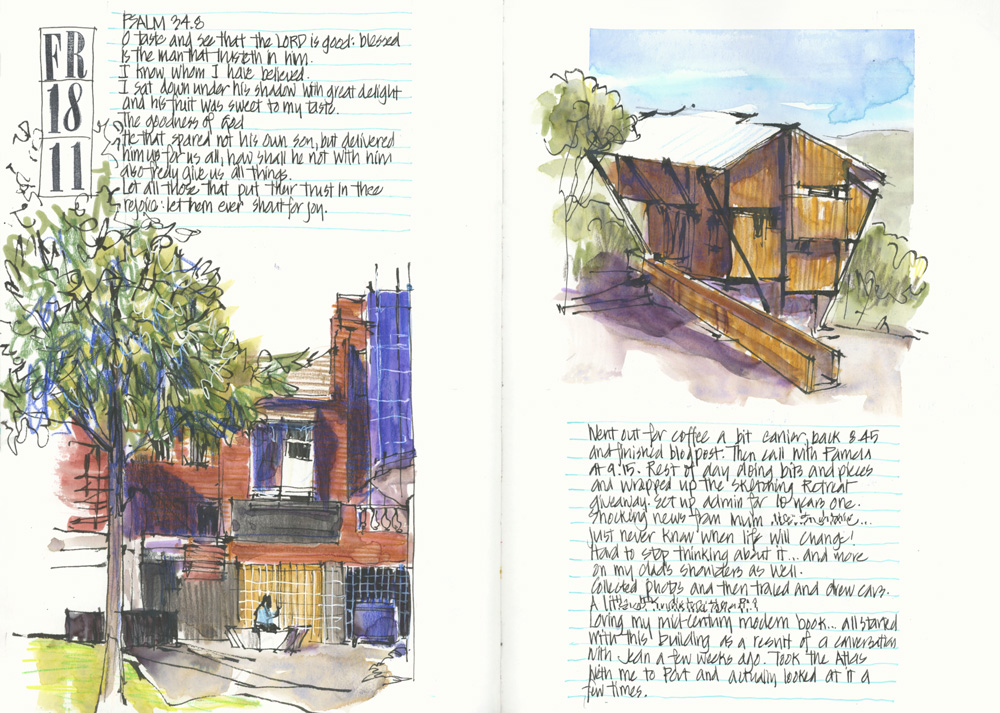 FR
18
11
PSALM 34.8
O taste and see that the LORD is good: blessed
is the man that trusteth in him.
I know whom I have believed.
I sat down under his shadow with great delight
and his fruit was sweet to my taste.
The goodness of God
He that spared not his own son, but delivered
him up for us all, how shall he not with him
also freely give us all things.
Let all those that put their trust in thee
rejoice: let them ever shout for joy.
Went out for coffee a bit earlier, back 8.45
and finished blogpost. Then call with
at 9.15. Rest of day doing bits and pieces
and wrapped up the Sketching Retreat
giveaway. Set up admin for 10 years one.
Shocking news from Mum
Just never know when life will change!
Hard to stop thinking about it... and more
on my dad's shoulders as well.
collected photos and then traced and drew cars.
A
Loving my mid-century modern book... all started
with this building as a result of a conversation
with Jean a few weeks ago. Took the Atlas
with me to Port and actually looked at it a
few times.